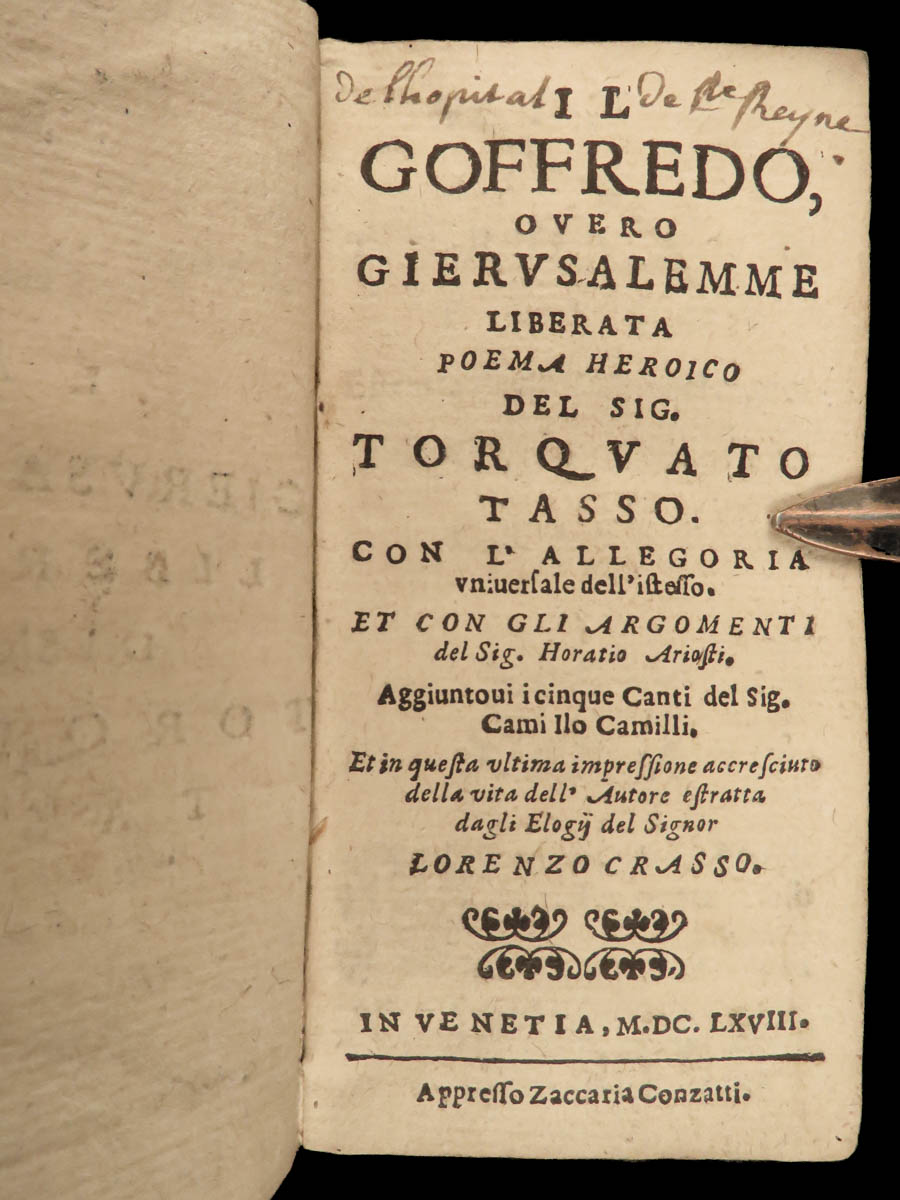 de lhopital de Ste Reyne
IL
GOFFREDO,
OVERO
GIERVSALEMME
LIBERATA
POEMA HEROICO
DEL SIG.
TORQVATO
TASSO.
CON L' ALLEGORIA
vniuerſale dell'iſteſſo.
ET CON GLI ARGOMENTI
del Sig. Horatio Arioſti.
Aggiuntoui i cinque Canti del Sig.
Cami llo Camilli.
Et in queſta vltima impreſſione accreſciuto
della vita dell' Autore eſtratta
dagli Elogij del Signor
LORENZO CRASSO.
IN VENETIA, M.DC. LXVIII.
Appreſſo Zaccaria Conzatti.